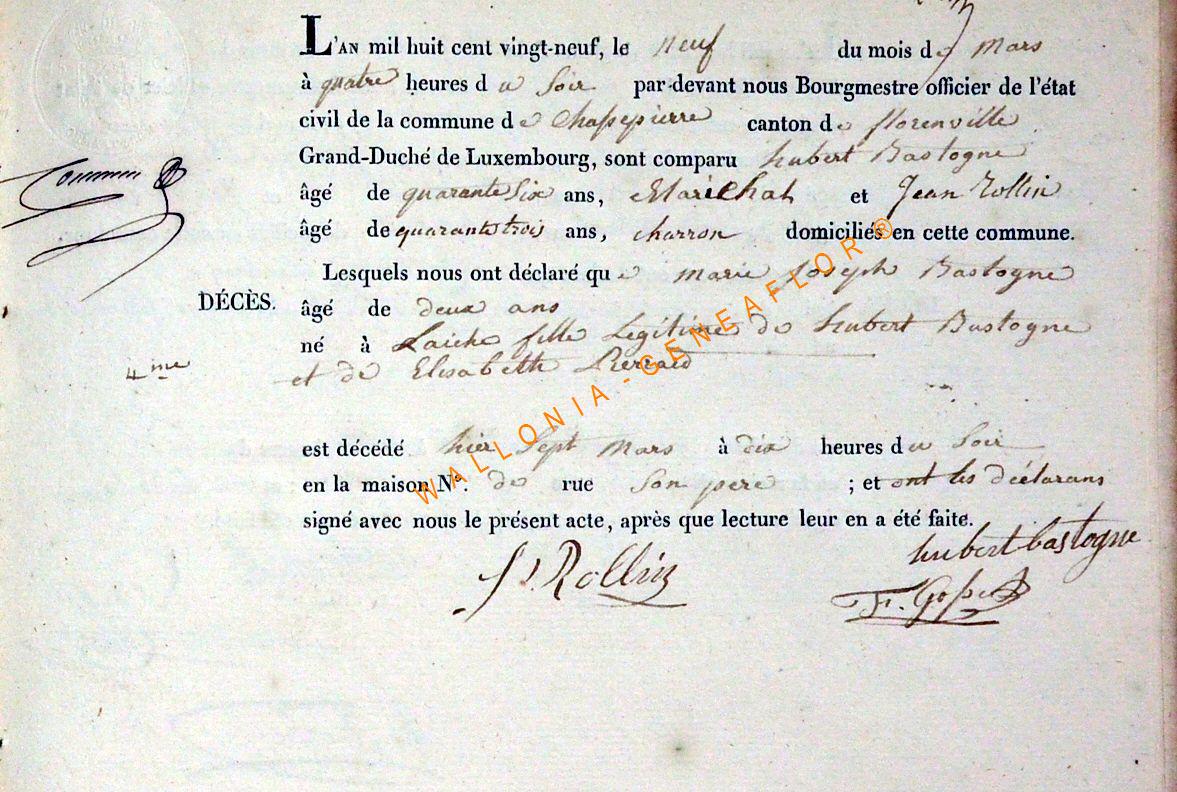 L'AN mil huit cent vingt-neuf, le neuf du mois de mars
à quatre heures du Soir par-devant nous Bourgmestre officier de l'état
civil de la commune de Chassepierre canton de florenville
Grand-Duché de Luxembourg, sont comparu hubert Bastogne
âgé de quarante Six ans, Marêchal et Jean Rollin
âgé de quarante trois ans, charron domiciliés en cette commune.
Lesquels nous ont déclaré que marie Joseph Bastogne
DÉCÈS.
âgé de deux ans
né à Laiche fille Legitime de hubert Bastogne
4me
et de Elisabeth
est décédé hier Sept mars à dix heures du Soir
en la maison N°. de rue Son pere ; et ont les déclarans
signé avec nous le présent acte, après que lecture leur en a été faite.
hubert bastogne
J Rollin
WALLONIA - GENEAFLOR ®